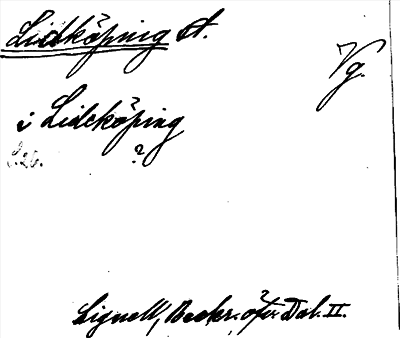 Lidköping st.
Vg.
i Lidcköping
?
Lignell, Beskr. öfv. Dal. II.